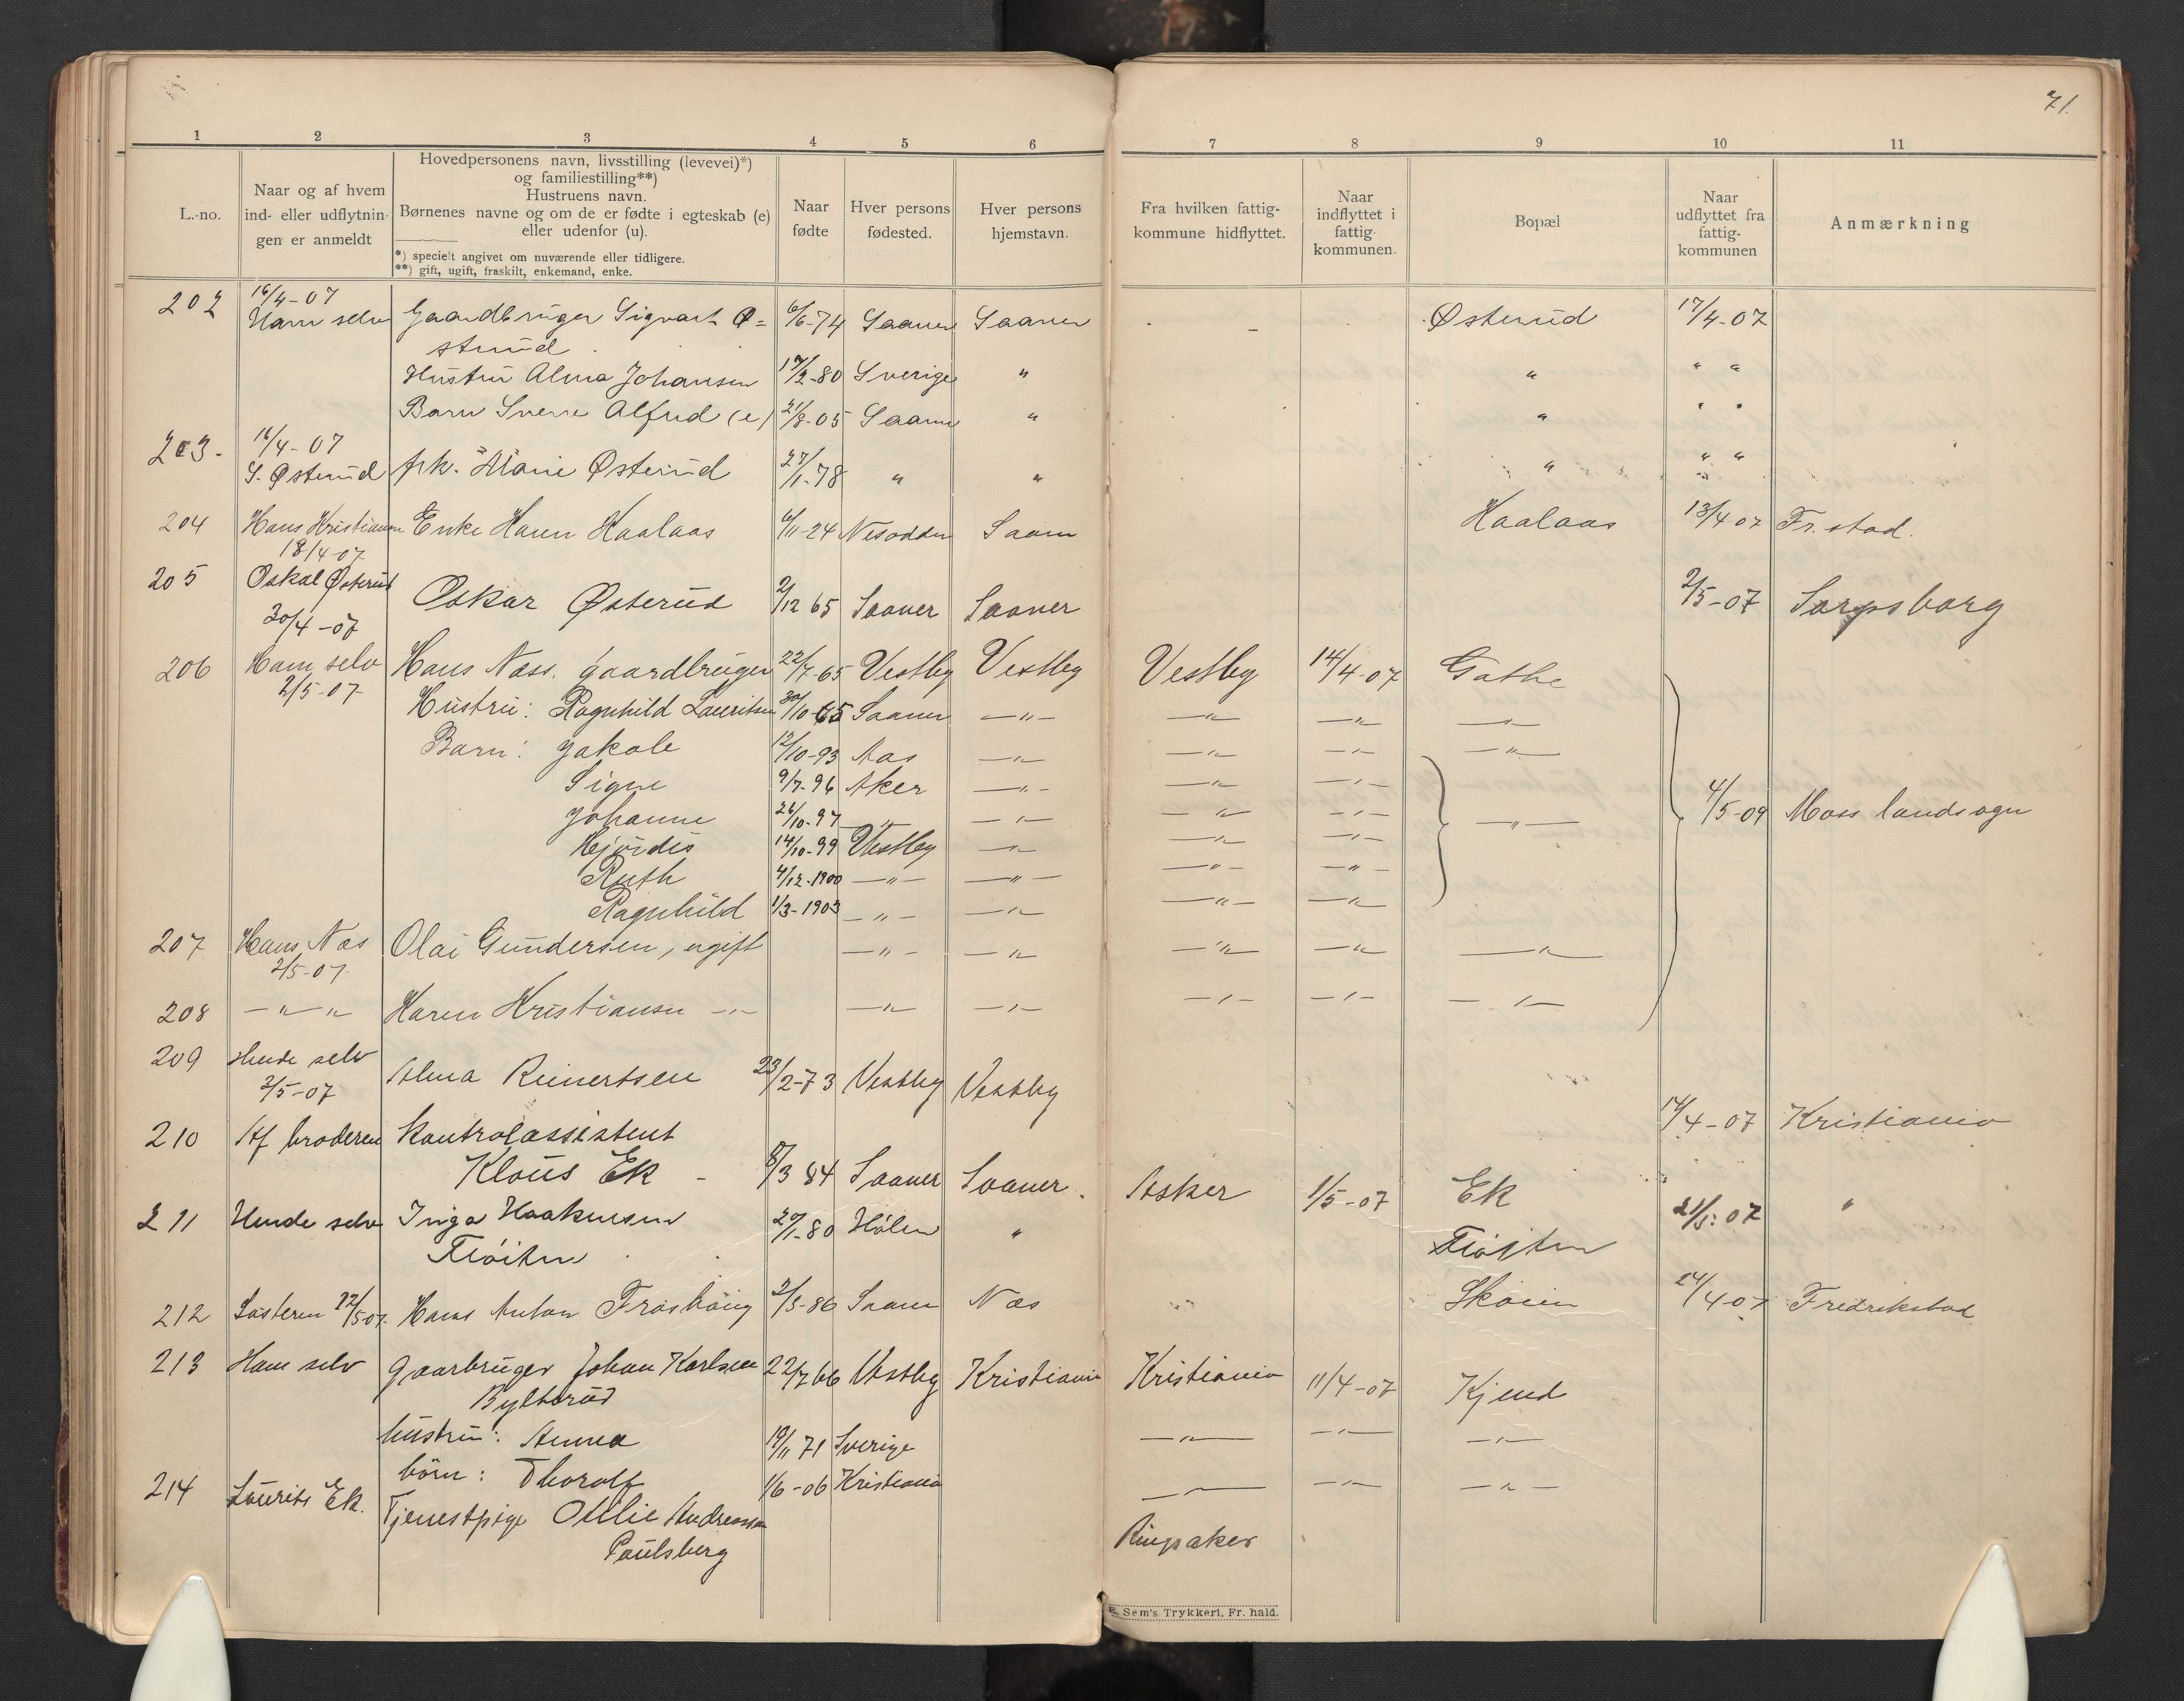 71.
1 2 3 4 5 6 7 8 9 10 11
L.-no.
Naar og af hvem
ind- eller udflytnin-
gen er anmeldt
Hovedpersonens navn, livsstilling (levevei)*)
og familiestilling**)
Hustruens navn.
Børnenes navne og om de er fødte i egteskab (e)
eller udenfor (u).
*) specielt angivet om nuværende eller tidligere.
**) gift, ugift, fraskilt, enkemand, enke.
Naar
fødte
Hver persons
fødested.
Hver persons
hjemstavn.
Fra hvilken fattig-
kommune hidflyttet.
Naar
indflyttet i
fattig-
kommunen.
Bopæl
Naar
udflyttet fra
fattig-
kommunen
Anmærkning
16/4-07
202 Ham selv Gaardbruger Sigvart Ø= 6/6-74 Saaner Saaner - Østerud 17/4-07
sterud
Hustru Alma Johansen 17/2-80 Sverige " " " "
Barn Sverre Alfred (e) 21/8-05 Saaner " " " "
203. 16/4-07
S. Østerud frk. Marie Østerud 27/1-78 " " " " "
204 Hans Kristiansen Enke Karen Kaalaas 6/11-24 Nesodden Saaner Kaalaas 13/4 07 Fr.stad.
18/4-07
205 Oskal Østerud Oskar Østerud 2/12 65 Saaner Saaner 2/5-07 Sarpsborg
30/4-07
206 Ham selv Hans Næss. gaardbruger 22/7-65 Vestby Vestby Vestby 14/4-07 Gathe
2/5-07 Hustru: Ragnhild Lauritsen 30/10-65 Saaner —"— —"— —"— —"—
Barn: Jakob 12/10-93 Aas —"— —"— —"— —"—
Signe 9/7-96 Aker —"— —"— —"—
Johanne 26/10-97 —"— —"— —"— —"— —"— 4/5-09 Moss landsogn
Hjördis 14/10-99 Vestby —"— —"— —"—
Ruth 4/12-1900 —"— —"— —"— —"—
Ragnhild 1/3-1903 —"— —"— —"— —"—
207 Hans Næs Olai Gundersen, ugift —"— —"— —"— —"— —"—
2/5-07
208 —"—"— Karen Kristiansen —"— —"— —"— —"— —"— —"—
209 Hende selv Alma Reinertsen 23/2-73 Vestby Vestby
2/5-07
210 Af broderen Kontrolassistent 14/4-07 Kristiania
Klaus Ek - 8/3 84 Saaner Saaner. Asker 1/5-07 Ek
211 Hende selv Inga Haakensen 20/1-80 Hölen " 21/5-07 "
Flöiten Flöjten
212 Søsteren 22/5 07. Hans Anton Froshaug 2/3-86 Saaner Næs Skøien 24/4 07 Fredrikstad
213 Ham selv gaarbruger Johan Karlsen 22/7 66 Vestby Kristiania Kristiania 11/4-07 Kjend
Bylterud
hustru: Anna 19/11 71 Sverige —"— —"— —"—
börn: Thorolf 1/6-06 Kristiania —"— —"— —"—
214 Laurits Ek. Tjenestpige Otilie Andreassen Ringsaker
Paulsberg
E. Sem's Trykkeri, Fr. hald.